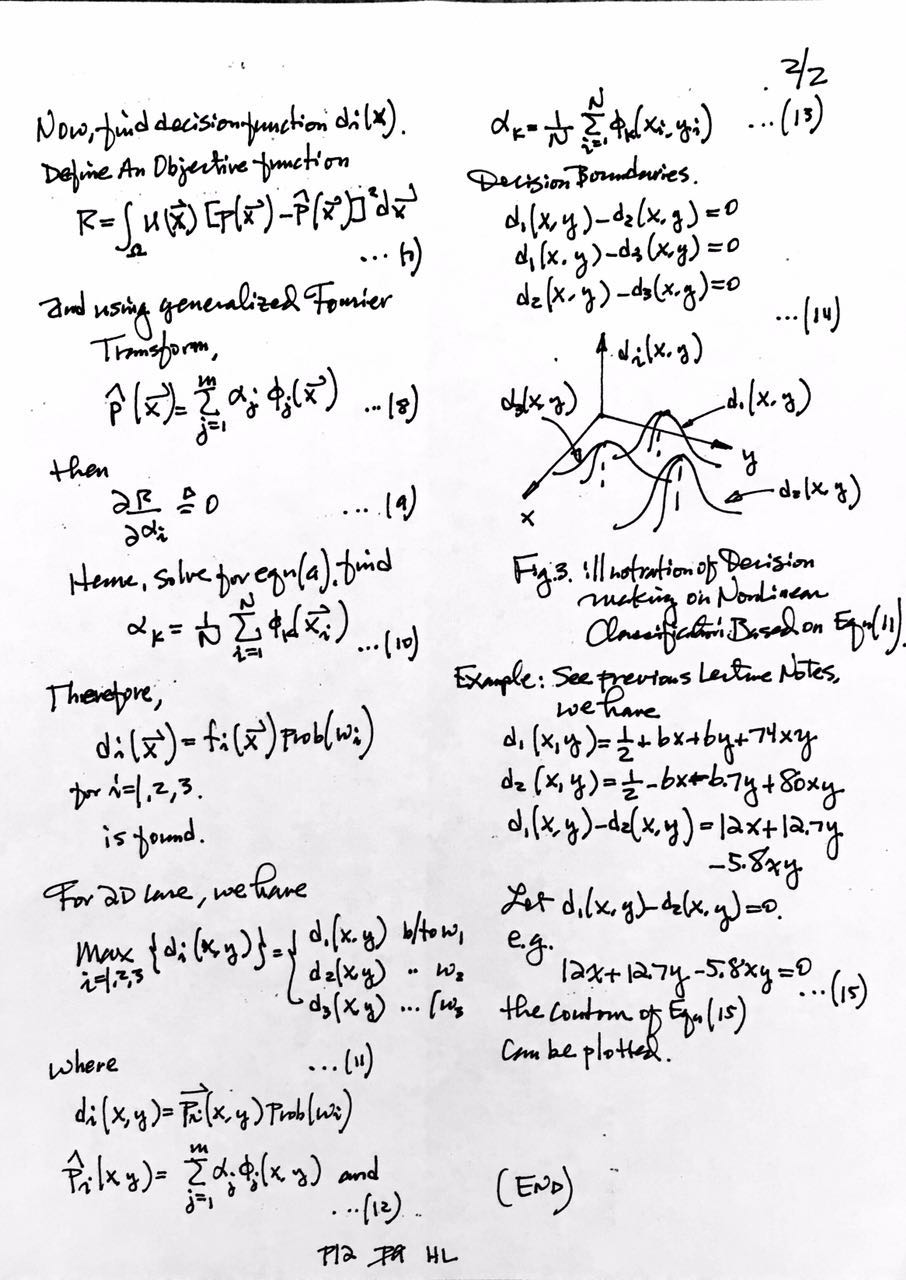 2/2
Now, find decision function di(x).
Define An Objective function
R = ∫_Ω u(x⃗) [p(x⃗) - p̂(x⃗)]² dx⃗
...(7)
and using generalized Fourier
Transform,
p̂(x⃗) = Σ_{j=1}^{m} αj ϕj(x⃗) ...(8)
then
∂R/∂αi ≜ 0 ...(9)
Hence, solve for eqn(9), find
αk = 1/N Σ_{i=1}^{N} ϕk(x⃗i) ...(10)
Therefore,
di(x⃗) = fi(x⃗) Prob(wi)
for i=1,2,3.
is found.
For 2D case, we have
max_{i=1,2,3} {di(x,y)} = { d1(x,y) b/to w1
d2(x,y) .. w2
d3(x,y) ... w3
where ...(11)
di(x,y) = p⃗i(x,y) Prob(wi)
p̂i(x,y) = Σ_{j=1}^{m} αj ϕj(x,y) and
...(12)
αk = 1/N Σ_{i=1}^{N} ϕk(xi, yi) ...(13)
Decision Boundaries.
d1(x,y) - d2(x,y) = 0
d1(x,y) - d3(x,y) = 0
d2(x,y) - d3(x,y) = 0
...(14)
di(x,y)
d3(x,y)
d1(x,y)
y
d2(x,y)
x
Fig.3. illustration of Decision
making on Nonlinear
Classification Based on Eqn(11)
Example: See previous Lecture Notes,
we have
d1(x,y) = 1/2 + 6x + 6y + 74xy
d2(x,y) = 1/2 - 6x - 6.7y + 80xy
d1(x,y) - d2(x,y) = 12x + 12.7y
- 5.8xy
Let d1(x,y) - d2(x,y) = 0.
e.g.
12x + 12.7y - 5.8xy = 0
...(15)
the contour of Eqn(15)
Can be plotted.
(END)
HL